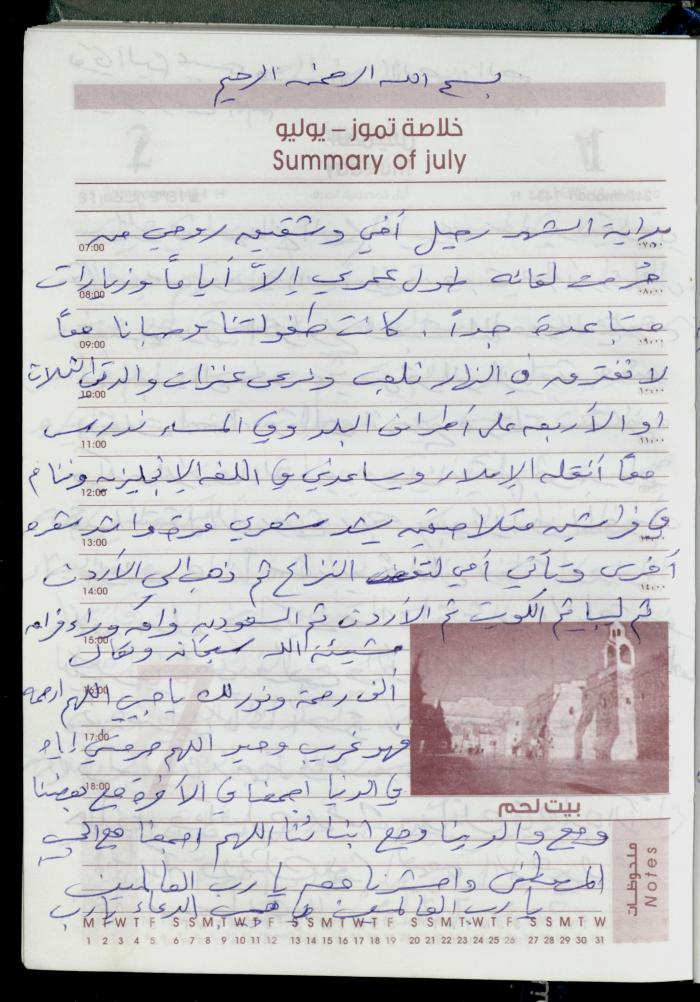 بسم الله الرحمن الرحيم
خلاصة تموز – يوليو
Summary of july
بداية الشهر رحيل أخي وشقيق روحي من
07:00
حُرمت لقائه طول عمري إلاّ أياماً وزيارات
08:00
متباعدة جداً. كانت طفولتنا وصبانا معاً
09:00
لا نفترق في النهار نلعب ونرعى عنزات والدتي الثلاث
10:00
او الأربعه على أطراف البلد وفي المساء ندرس
11:00
معاً أنقله الإملاء ويساعدني في اللغه الإنجليزيه وننام
12:00
في فراشين متلاصقين يشد شعري مرة واشد شعره
13:00
أخرى وتأتي أمي لتفض النزاع ثم ذهب الى الأردن
14:00
ثم ليبيا ثم الكويت ثم الأردن ثم السعوديه وامه وراء
15:00
مشيئة الله سبحانه وتعالى
ألف رحمة ونور لك يا حبيبي اللهم ارحمه
16:00
فهو غريب وحيد اللهم حرمتني إياه
17:00
في الدنيا اجمعنا في الآخرة مع بعضنا
18:00
بيت لحم
ومع والدينا ومع ابنائنا اللهم اجمعنا مع النبي
المصطفى واحشرنا معه يا رب العالمين
يا رب العالمين الدعاء يا رب
ملحوظات
Notes
M T W T F S S M T W T F S S M T W T F S S M T W T F S S M T W
1 2 3 4 5 6 7 8 9 10 11 12 13 14 15 16 17 18 19 20 21 22 23 24 25 26 27 28 29 30 31